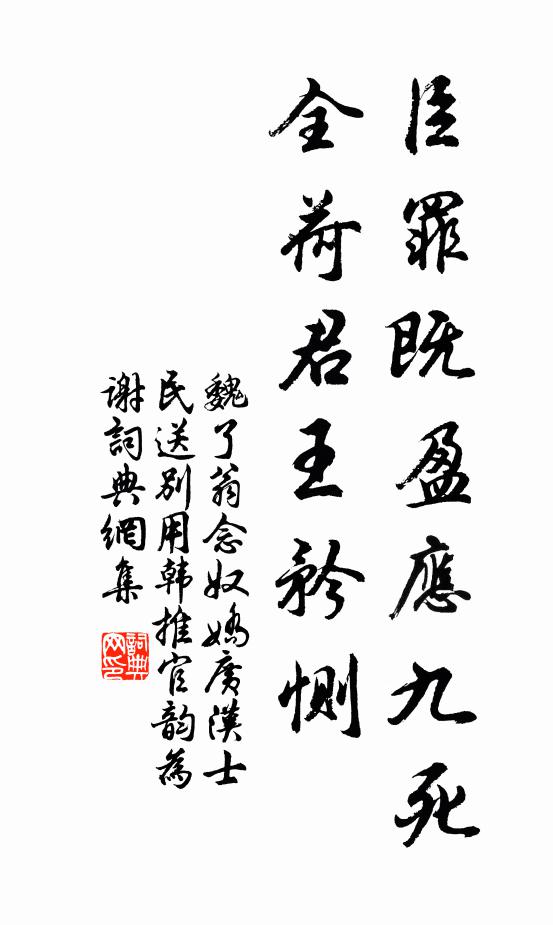 臣罪既盈應九死
全荷君王矜惻
魏了翁念奴嬌廣漢士
民送別用韩推官韵為
謝詞典網集
詞典網印